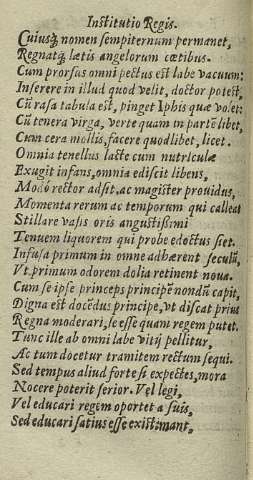 Institutio Regis.
Cuiusq; nomen sempiternum permanet,
Regnatq; lætis angelorum cœtibus.
Cum prorsus omni pectus est labe vacuum:
Inserere in illud quod velit, doctor potest.
Cū rasa tabula est, pinget Iphis quæ volet:
Cū tenera virga, verte quam in partē libet,
Cum cera mollis, facere quodlibet, licet.
Omnia tenellus lacte cum nutriculæ
Exugit infans, omnia ediscit libens,
Modò rector adsit, ac magister prouidus,
Momenta rerum ac temporum qui calleat
Stillare vasis oris angustißimi
Tenuem liquorem qui probe edoctus siet.
Infusa primum in omne adhærent seculū,
Vt primum odorem dolia retinent noua.
Cum se ipse princeps principē nondū capit,
Digna est docēdus principe, vt discat prius
Regna moderari, se esse quam regem putet.
Tunc ille ab omni labe vitij pellitur,
Ac tum docetur tramitem rectum sequi.
Sed tempus aliud forte si expectes, mora
Nocere poterit serior. Vel legi,
Vel educari regem oportet a suis,
Sed educari satius esse existimant,